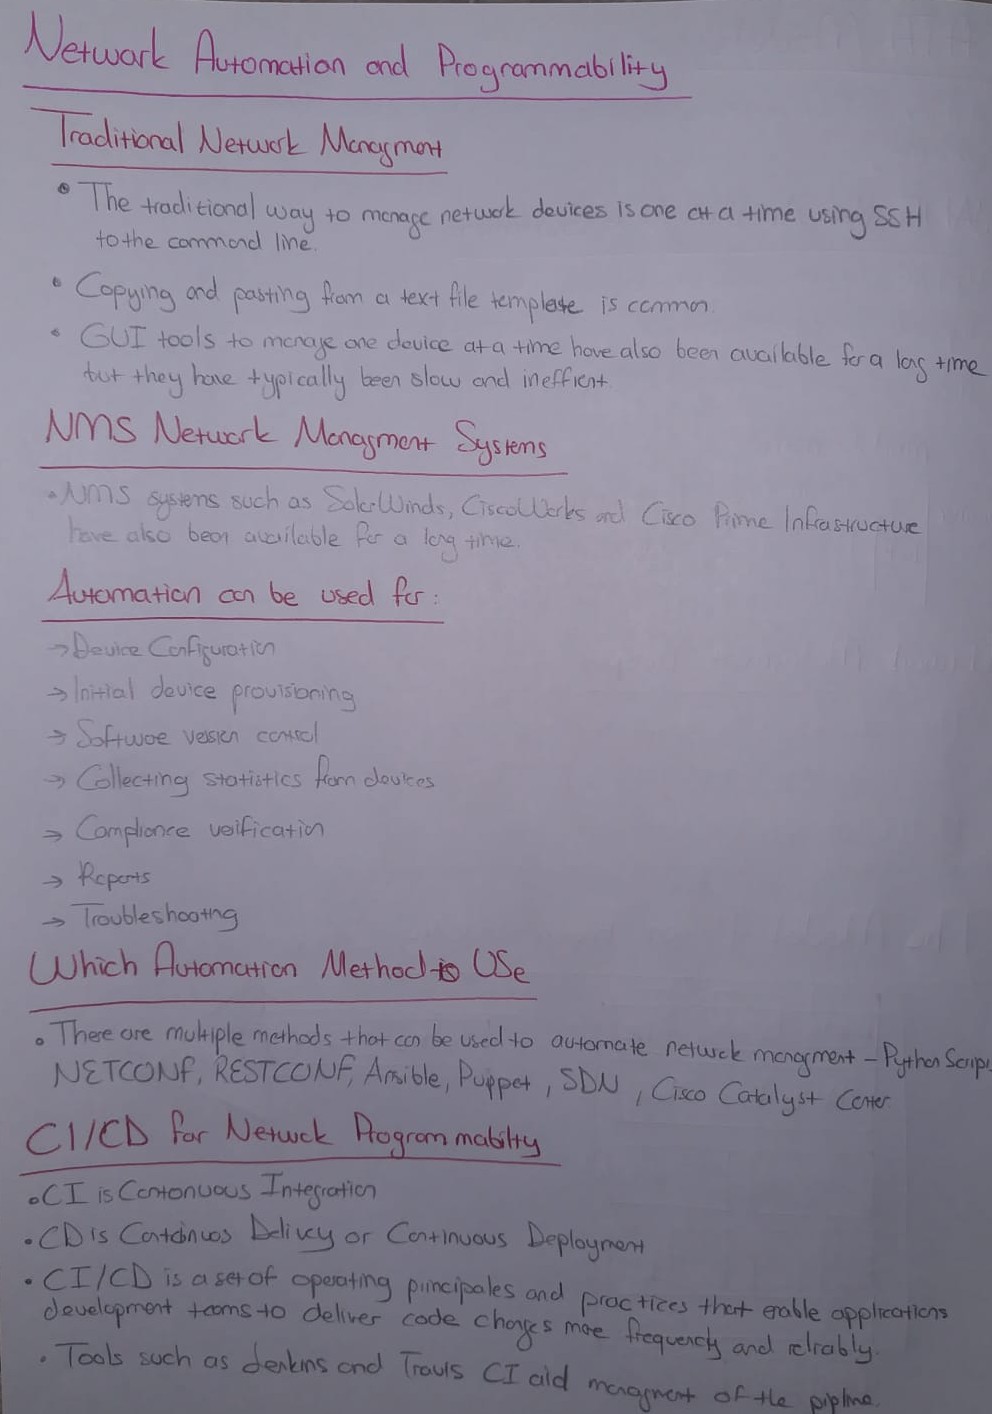 Network Automation and Programmability
Traditional Network Managment
• The traditional way to manage network devices is one at a time using SSH
to the command line.
• Copying and pasting from a text file template is common.
• GUI tools to manage one device at a time have also been available for a long time
but they have typically been slow and inefficent.
NMS Network Managment Systems
• NMS systems such as SolarWinds, CiscoWorks and Cisco Prime Infrastructure
have also been available for a long time.
Automation can be used for:
→ Device Configuration
→ Initial device provisioning
→ Software version control
→ Collecting statistics from devices
→ Compliance verification
→ Reports
→ Troubleshooting
Which Automation Method to Use
• There are multiple methods that can be used to automate network managment - Python Scrips,
NETCONF, RESTCONF, Ansible, Puppet, SDN, Cisco Catalyst Center
CI/CD for Network Programmabilty
• CI is Contonuous Integration
• CD is Continuos Delivery or Continuous Deployment
• CI/CD is a set of operating principales and practices that enable applications
development teams to deliver code changes more frequently and reliably.
• Tools such as Jenkins and Travis CI aid managment of the pipline.